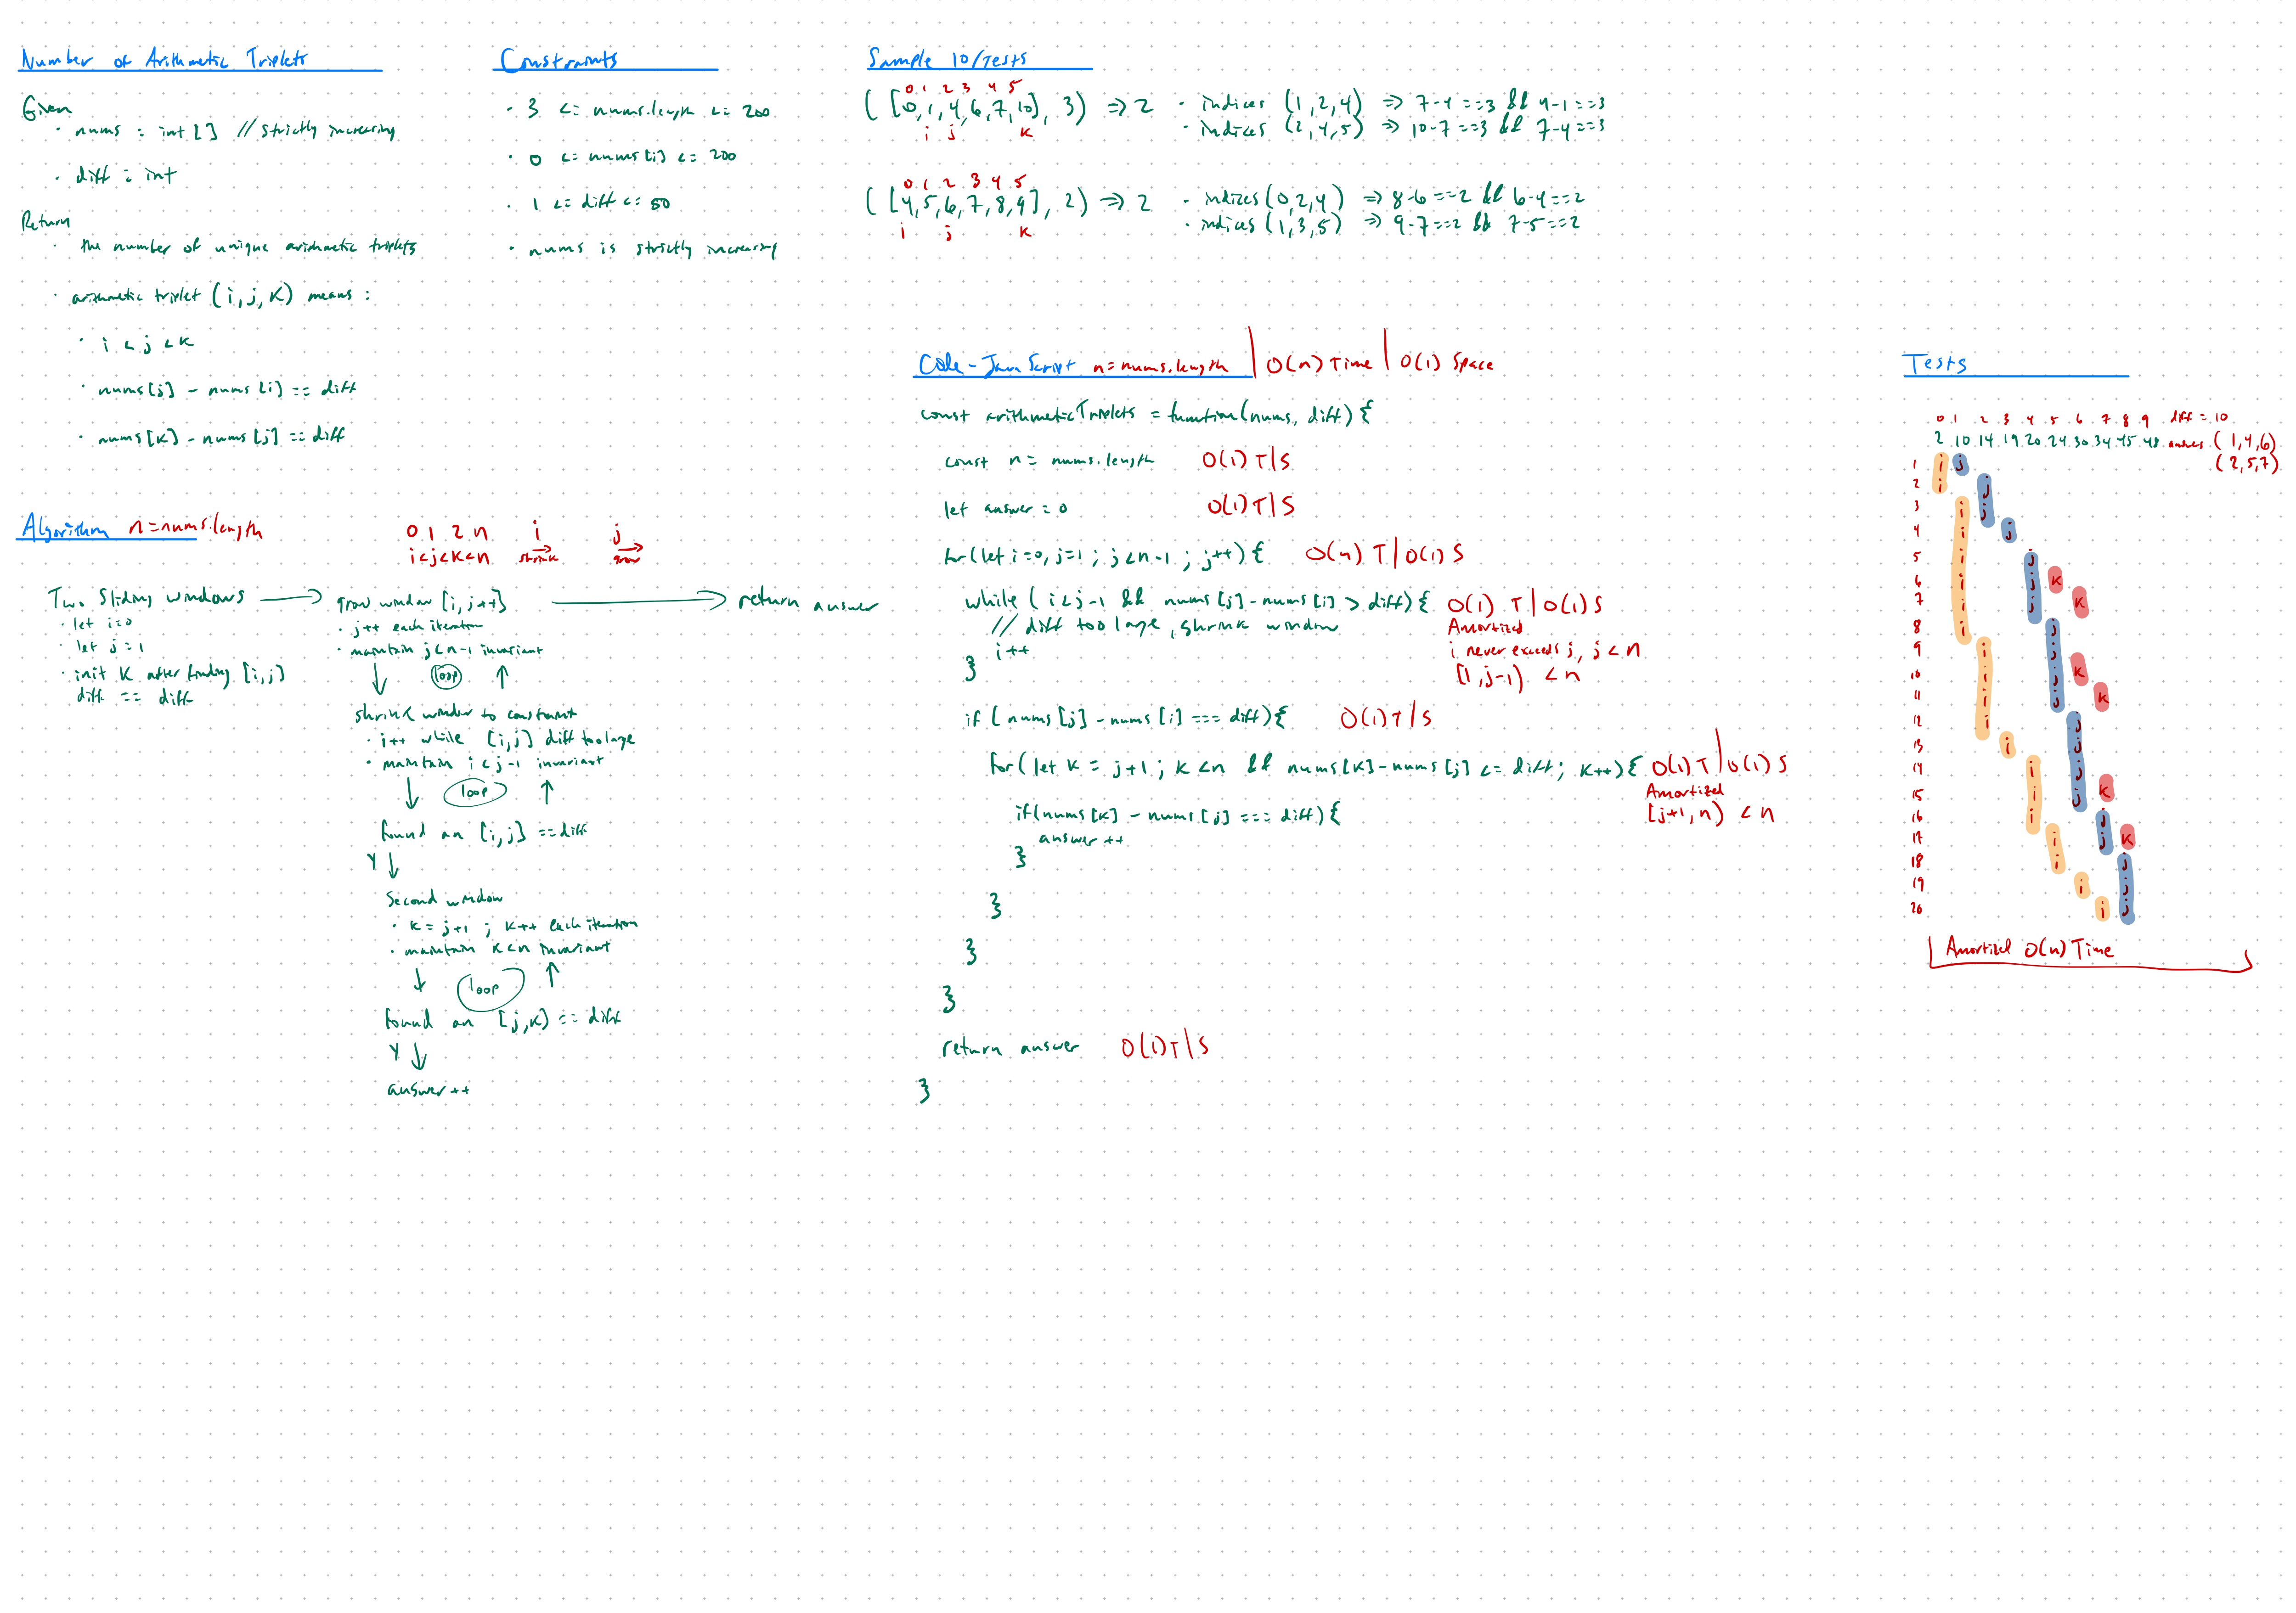 Number of Arithmetic Triplets
Given
· nums : int[] // strictly increasing
· diff : int
Return
· the number of unique arithmetic triplets
· arithmetic triplet (i, j, k) means :
· i < j < k
· nums[j] - nums[i] == diff
· nums[k] - nums[j] == diff
Constraints
· 3 <= nums.length <= 200
· 0 <= nums[i] <= 200
· 1 <= diff <= 50
· nums is strictly increasing
Sample IO/Tests
0 1 2 3 4 5
( [0,1,4,6,7,10], 3) => 2 · indices (1,2,4) => 7-4 ==3 && 4-1 ==3
i j k · indices (2,4,5) => 10-7 ==3 && 7-4 ==3
0 1 2 3 4 5
( [4,5,6,7,8,9], 2) => 2 · indices (0,2,4) => 8-6 ==2 && 6-4 ==2
i j k · indices (1,3,5) => 9-7 ==2 && 7-5 ==2
Algorithm n = nums.length
0 1 2 n i j
i<j<k<n shrink grow
Two Sliding Windows
· let i=0
· let j=1
· init k after finding [i,j]
diff == diff
grow window [i, j++]
· j++ each iteration
· maintain j<n-1 invariant
loop
shrink window to constraint
· i++ while [i,j] diff too large
· maintain i<j-1 invariant
loop
found an [i,j] == diff
Y
Second window
· k = j+1 ; k++ each iteration
· maintain k<n invariant
loop
found an [j,k] == diff
Y
answer++
return answer
Code - JavaScript n = nums.length | O(n) Time | O(1) Space
const arithmeticTriplets = function(nums, diff) {
const n = nums.length O(1) T|S
let answer = 0 O(1) T|S
for(let i=0, j=1 ; j<n-1 ; j++) { O(n) T | O(1) S
while ( i<j-1 && nums[j]-nums[i] > diff) { O(1) T | O(1) S
// diff too lage, shrink window Amortized
i++ i never exceeds j, j<n
} [1, j-1) < n
if ( nums[j] - nums[i] === diff) { O(1) T|S
for( let k = j+1 ; k<n && nums[k]-nums[j] <= diff; k++) { O(1) T | O(1) S
Amortized
if(nums[k] - nums[j] === diff) { [j+1, n) < n
answer++
}
}
}
}
return answer O(1) T|S
}
Tests
0 1 2 3 4 5 6 7 8 9 diff = 10
2 10 14 19 20 24 30 34 45 48 (1,4,6)
1 i j (2,5,7)
2 i j
3 i j
4 i j
5 i j
6 i j k
7 i j k
8 i j
9 i j
10 i j k
11 i j k
12 i j
13 i j
14 i j
15 i j k
16 i j
17 i j k
18 i j
19 i j
20 i j
Amortized O(n) Time